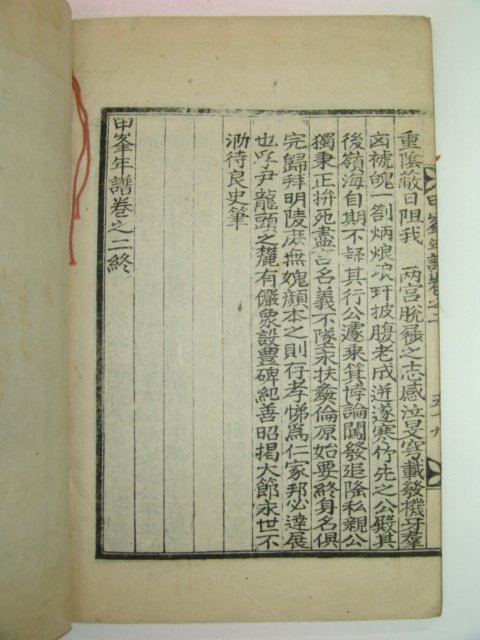 甲峯年譜卷之二
五十九
重陰蔽日阻我　兩宮脫屣之志感泣旻穹載發機牙羣
凶褫魄一劄炳烺琅玕披腹老成迸逐寒竹先之公殿其
後嶺海自期不疑其行公遽乘箕悖論闖發追隆私親公
獨秉正拚死盡言名義不墜永扶彝倫原始要終身名俱
完歸拜明陵庶無媿顏本之則存孝悌爲仁家邦必達展
也孚尹龍頭之麓有儼象設豊碑紀善昭揭大節永世不
泐待良史筆
甲峯年譜卷之二終